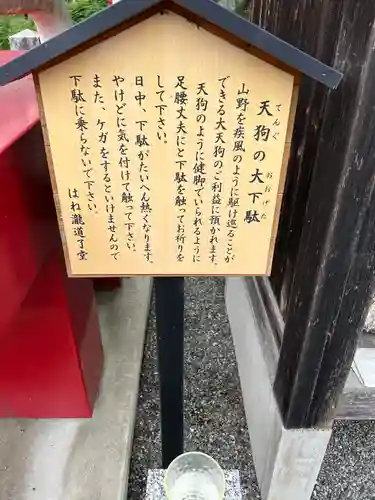 天狗の大下駄
てんぐ
おおげた
山野を疾風のように駆け巡ることが
できる大天狗のご利益に預かれます。
天狗のように健脚でいられるように
足腰丈夫にと下駄を触ってお祈りを
して下さい。
日中、下駄がたいへん熱くなります。
やけどに気を付けて触って下さい。
また、ケガをするといけませんので
下駄に乗らないで下さい。
はね瀧道了堂